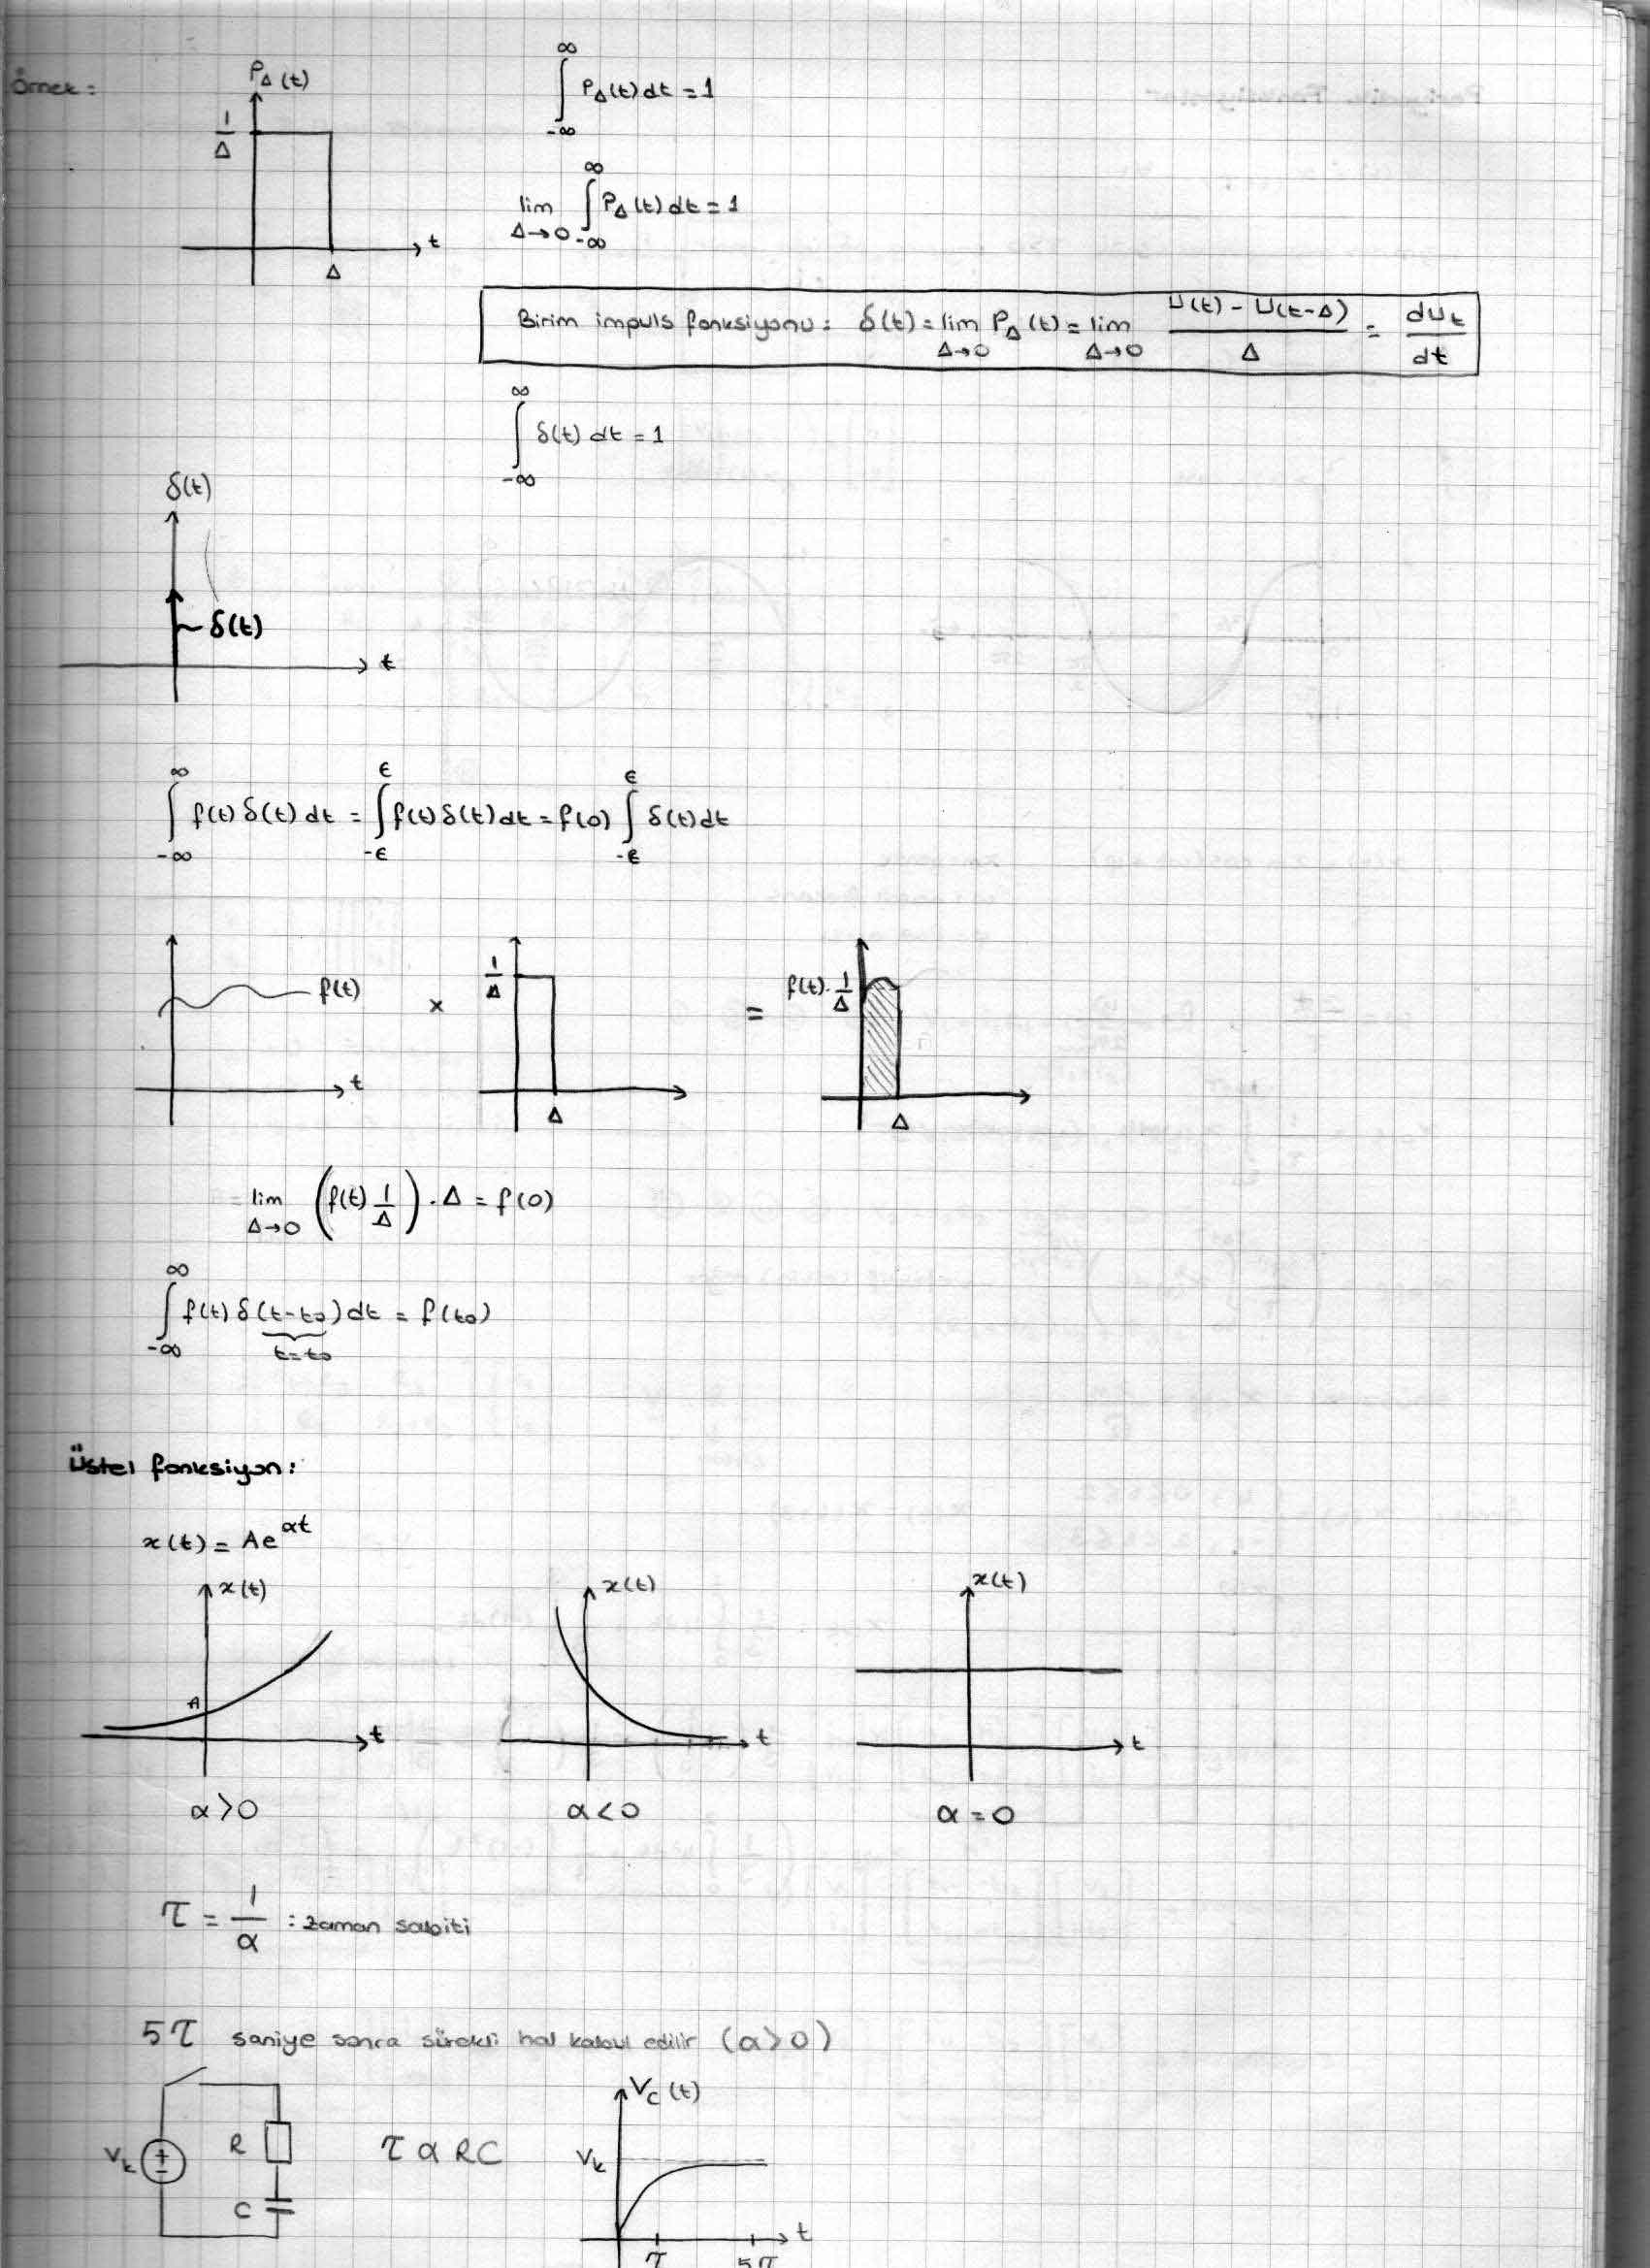 Örnek:
P_Δ(t)
1/Δ
t
Δ
∫_{-∞}^{∞} P_Δ(t) dt = 1
lim_{Δ→0} ∫_{-∞}^{∞} P_Δ(t) dt = 1
Birim impuls fonksiyonu: δ(t) = lim_{Δ→0} P_Δ(t) = lim_{Δ→0} (U(t) - U(t-Δ))/Δ = dU_t/dt
∫_{-∞}^{∞} δ(t) dt = 1
δ(t)
δ(t)
t
∫_{-∞}^{∞} f(t) δ(t) dt = ∫_{-ϵ}^{ϵ} f(t) δ(t) dt = f(0) ∫_{-ϵ}^{ϵ} δ(t) dt
f(t) × 1/Δ = f(t)·1/Δ
t Δ Δ
= lim_{Δ→0} (f(t) 1/Δ) . Δ = f(0)
∫_{-∞}^{∞} f(t) δ(t-t₀) dt = f(t₀)
t=t₀
Üstel fonksiyon:
x(t) = Ae^{αt}
x(t) x(t) x(t)
A
t t t
α>0 α<0 α=0
τ = 1/α : zaman sabiti
5τ saniye sonra sürekli hal kabul edilir (α>0)
V_k R C
τ α RC
V_C(t)
V_k
t
τ 5τ